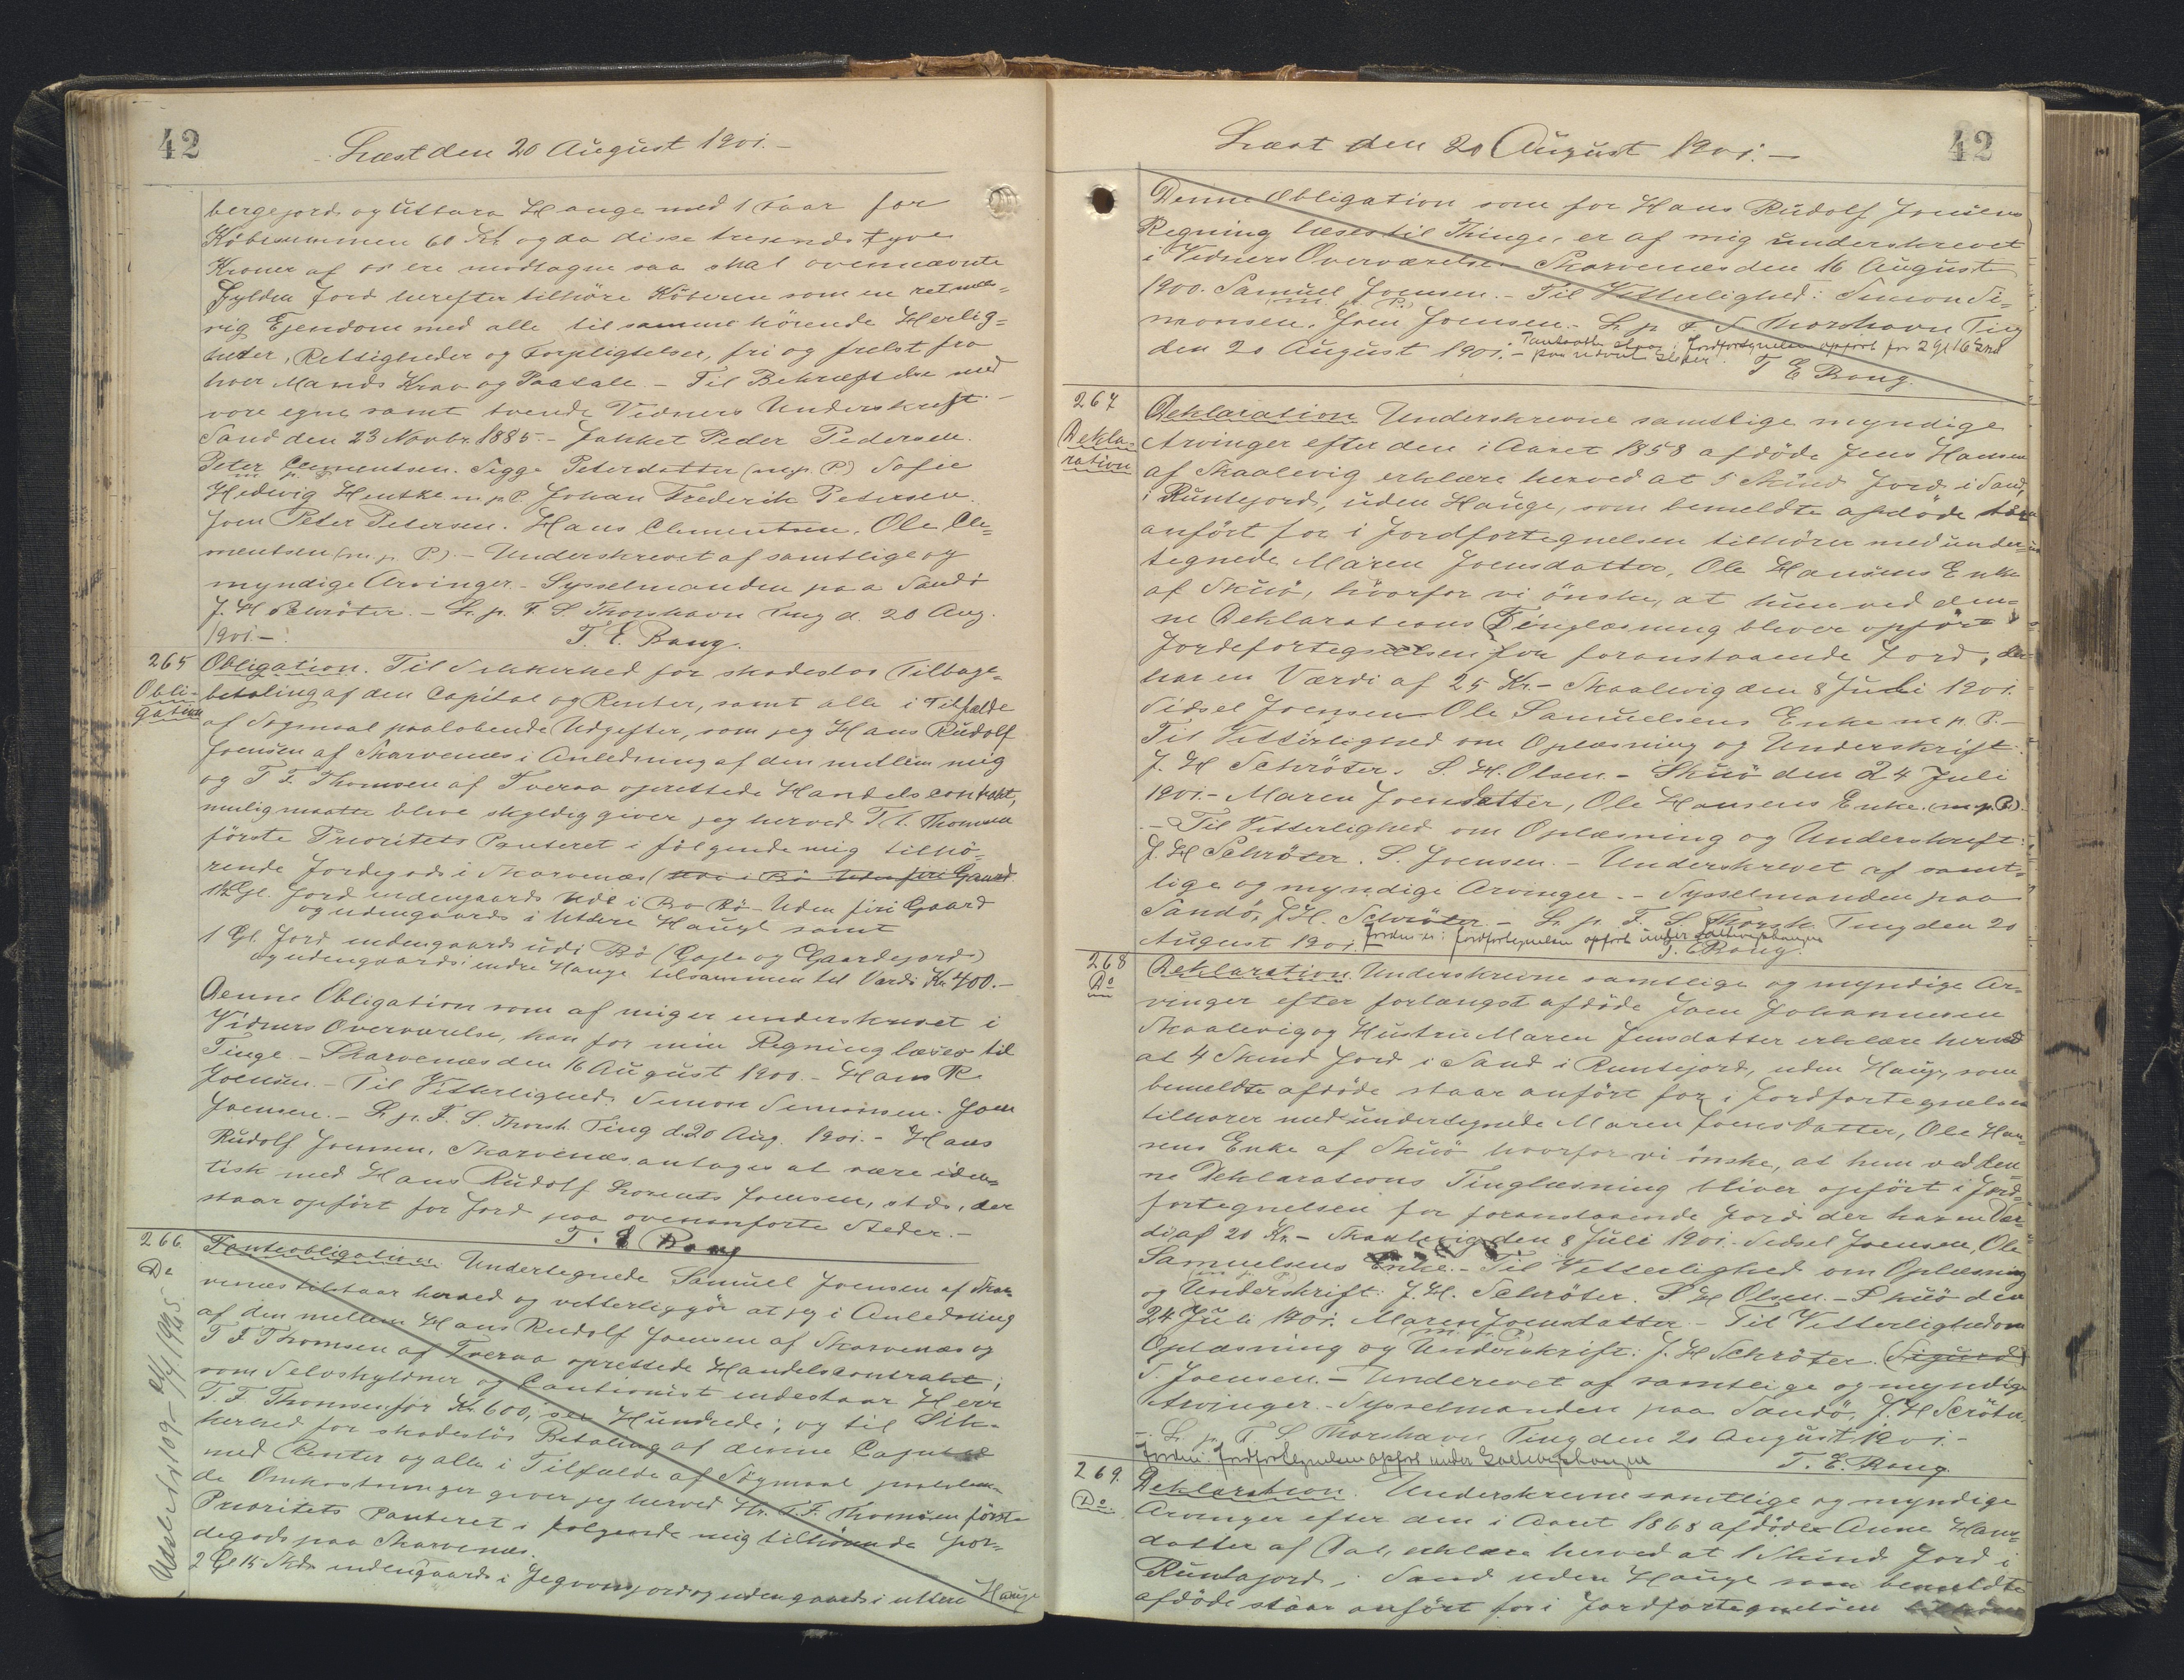 42
Læst den 20 August 1901.-
bergejord og Uttara Hauge med 1 Faar for
Købesummen 60 Kr. og da disse tresinds tyve
Kroner af os ere modtagne saa skal ovennævnte
Gylden Jord herefter tilhöre Köberen som en retmæs=
sig Ejendom med alle til samme hörende Herlig=
heder, Rettigheder og Forpligtelser, fri og frelst fra
hver Mands Krav og Paatale. - Til Bekræftelse med
vore egne samt tvende Vidners Underskrift. -
Sand den 23 Novbr. 1885. - Jakket Peder Pedersen.
Peter Clementsen. Sigge Petersdatter (m. p. P.) Sofie
m. p. P.
Hedevig Hentke m. p. P. Johan Frederik Petersen.
Joen Peter Petersen. Hans Clementsen. Ole Cle=
mentsen (m. p. P.) - Underskrevet af samtlige og
myndige Arvinger - Sysselmanden paa Sandö
J. H Schröter. - L. p. F. S. Thorshavn Ting d. 20 Aug.
1901. - T. E. Bang.
265
Obli-
gation
Obligation. Til Sikkerhed for skadeslös Tilbage=
betaling af den Capital og Renter, samt alle i Tilfælde
af Sögmaal paalöbende Udgifter, som jeg Hans Rudolf
Joensen af Skarvenæs i Anledning af den mellem mig
og T. F. Thomsen af Tveraa oprettede Handelscontrakt,
mulig maatte blive skyldig giver jeg herved T. F. Thomsen
förste Prioritets Panteret i fölgende mig tilhö=
rende Jordegods i Skarvenæs
1½ Gl. Jord indengaards Ude i Bø - Uden firi Gaard
og udengaards i Uttere Hauge samt
1 Gl. Jord indengaards udi Bö (Gagle og Gaardejord)
og udengaards i indre Hauge tilsammen til Værdi Kr. 400. -
Denne Obligation som af mig er underskrevet i
Vidners Overværelse, kan for min Regning læses til
Tinge. - Skarvenæs den 16 August 1900. - Hans R.
Joensen. - Til Vitterlighed: Simon Simonsen. Joen
Joensen. - L. p. F. S. Thorsh. Ting d. 20 Aug. 1901. - Hans
Rudolf Joensen, Skarvenæs antages at være iden=
tisk med Hans Rudolf Lorents Joensen, stds., der
staar opfört for Jord paa ovenanførte Steder. -
T. E Bang
266.
Do
Panteobligation. Undertegnede Samuel Joensen af Skar=
venæs tilstaar herved og vitterliggör at jeg i Anledning
af den mellem Hans Rudolf Joensen af Skarvenæs og
T F Thomsen af Tveraa oprettede Handelscontrakt,
som Selvskyldner og Cautionist indestaar Herr
T. F. Thomsen for Kr. 600, sex Hundrede; og til Sik-
kerhed for skadeslös Betaling af denne Capital
med Renter og alle i Tilfælde af Sögmaal paalöben-
de Omkostninger giver jeg herved Hr. T. F. Thomsen förste
Prioritets Panteret i følgende mig tilhörende Jor=
degods paa Skarvenæs.
2 Gl 15 Skd. indengaards i Jegvonsjord og udengaards i uttere Hauge
42
Læst den 20 August 1901. -
Denne Obligation som for Hans Rudolf Joensens
Regning læses til Thinge, er af mig underskrevet
i Vidners Overværelse. Skarvenæs den 16 August
1900. Samuel Joensen. - Til Vitterlighed: Simon Si=
(m. p. P.)
monsen. Joen Joensen. - L. p. F. S Thorshavn Ting
den 20 August 1901. - T E Bang.
267
Dekla-
ration
Deklaration Underskrevne samtlige myndige
Arvinger efter den i Aaret 1858 afdöde Jens Hansen
af Skaalevig erklære herved at 5 Skind Jord i Sand,
i Runtejord, uden Hauge, som bemeldte afdöde staar
anfört for i Jordfortegnelsen tilhörer medunder-
tegnede Maren Joensdatter, Ole Hansens Enke
af Skuö, hvorfor vi önske, at hun ved den=
ne Deklarations Tinglæsning bliver opfört i
Jordefortegnelsen for foranstaaende Jord, der
har en Værdi af 25 Kr. - Skaalevig den 8 Juli 1901. -
Sidsel Joensen Ole Samuelsens Enke m. p. P. -
Til Vitterlighed om Oplæsning og Underskrift:
J. H Schröter. S. H. Olsen. - Skuö den 24 Juli
1901. - Maren Joensdatter, Ole Hansens Enke. (m. p. P.)
- Til Vitterlighed om Oplæsning og Underskrift:
J. H Schröter. S. Joensen. - Underskrevet af samt=
lige og myndige Arvinger. - Sysselmanden paa
Sandö, J. H. Schröter - L. p. F. S Thorsh. Ting den 20
August 1901. Jorden er i Jordfortegnelsen opfört under
T. E Bang.
268
Do
Deklaration. Underskrevne samtlige og myndige Ar=
vinger efter forlængst afdöde Joen Johannesen
Skaalevig og Hustru Maren Jensdatter erklære herved
at 4 Skind Jord i Sand i Runtejord, uden Hauge, som
bemeldte afdöde staar anfört for i Jordfortegnelsen
tilhörer medundertegnede Maren Joensdatter, Ole Han=
sens Enke af Skuö hvorfor vi önske, at hun ved den=
ne Deklarations Tinglæsning bliver opfört i Jord=
fortegnelsen for foranstaaende Jord der har en Vær=
di af 20 Kr. - Skaalevig den 8 Juli 1901. Sidsel Joensen, Ole
Samuelsens Enke. - Til Vitterlighed om Oplæsning
og Underskrift: J. H. Schröter. S H Olsen. - Skuö den
24 Juli 1901. Maren Joensdatter - Til Vitterlighed om
(m. p. P.)
Oplæsning og Underskrift: J. H Schröter. (Sigurd)
S. Joensen. - Underevet af samtlige og myndige
Arvinger. - Sysselmanden paa Sandö, J. H Scröter.
- L. p. F. S. Thorshavn Ting den 20 August 1901. -
Jorden i Jordfortegnelsen opfört under
T. E. Bang.
269.
Do.
Deklaration. Underskrevne samtlige og myndige
Arvinger efter den i Aaret 1868 afdöde Anne Hans=
datter af Dal, erklære herved at 1 Skind Jord i
Runtajord i Sand uden Hauge som bemeldte
afdöde staar anfört for i Jordfortegnelsen tilhörer